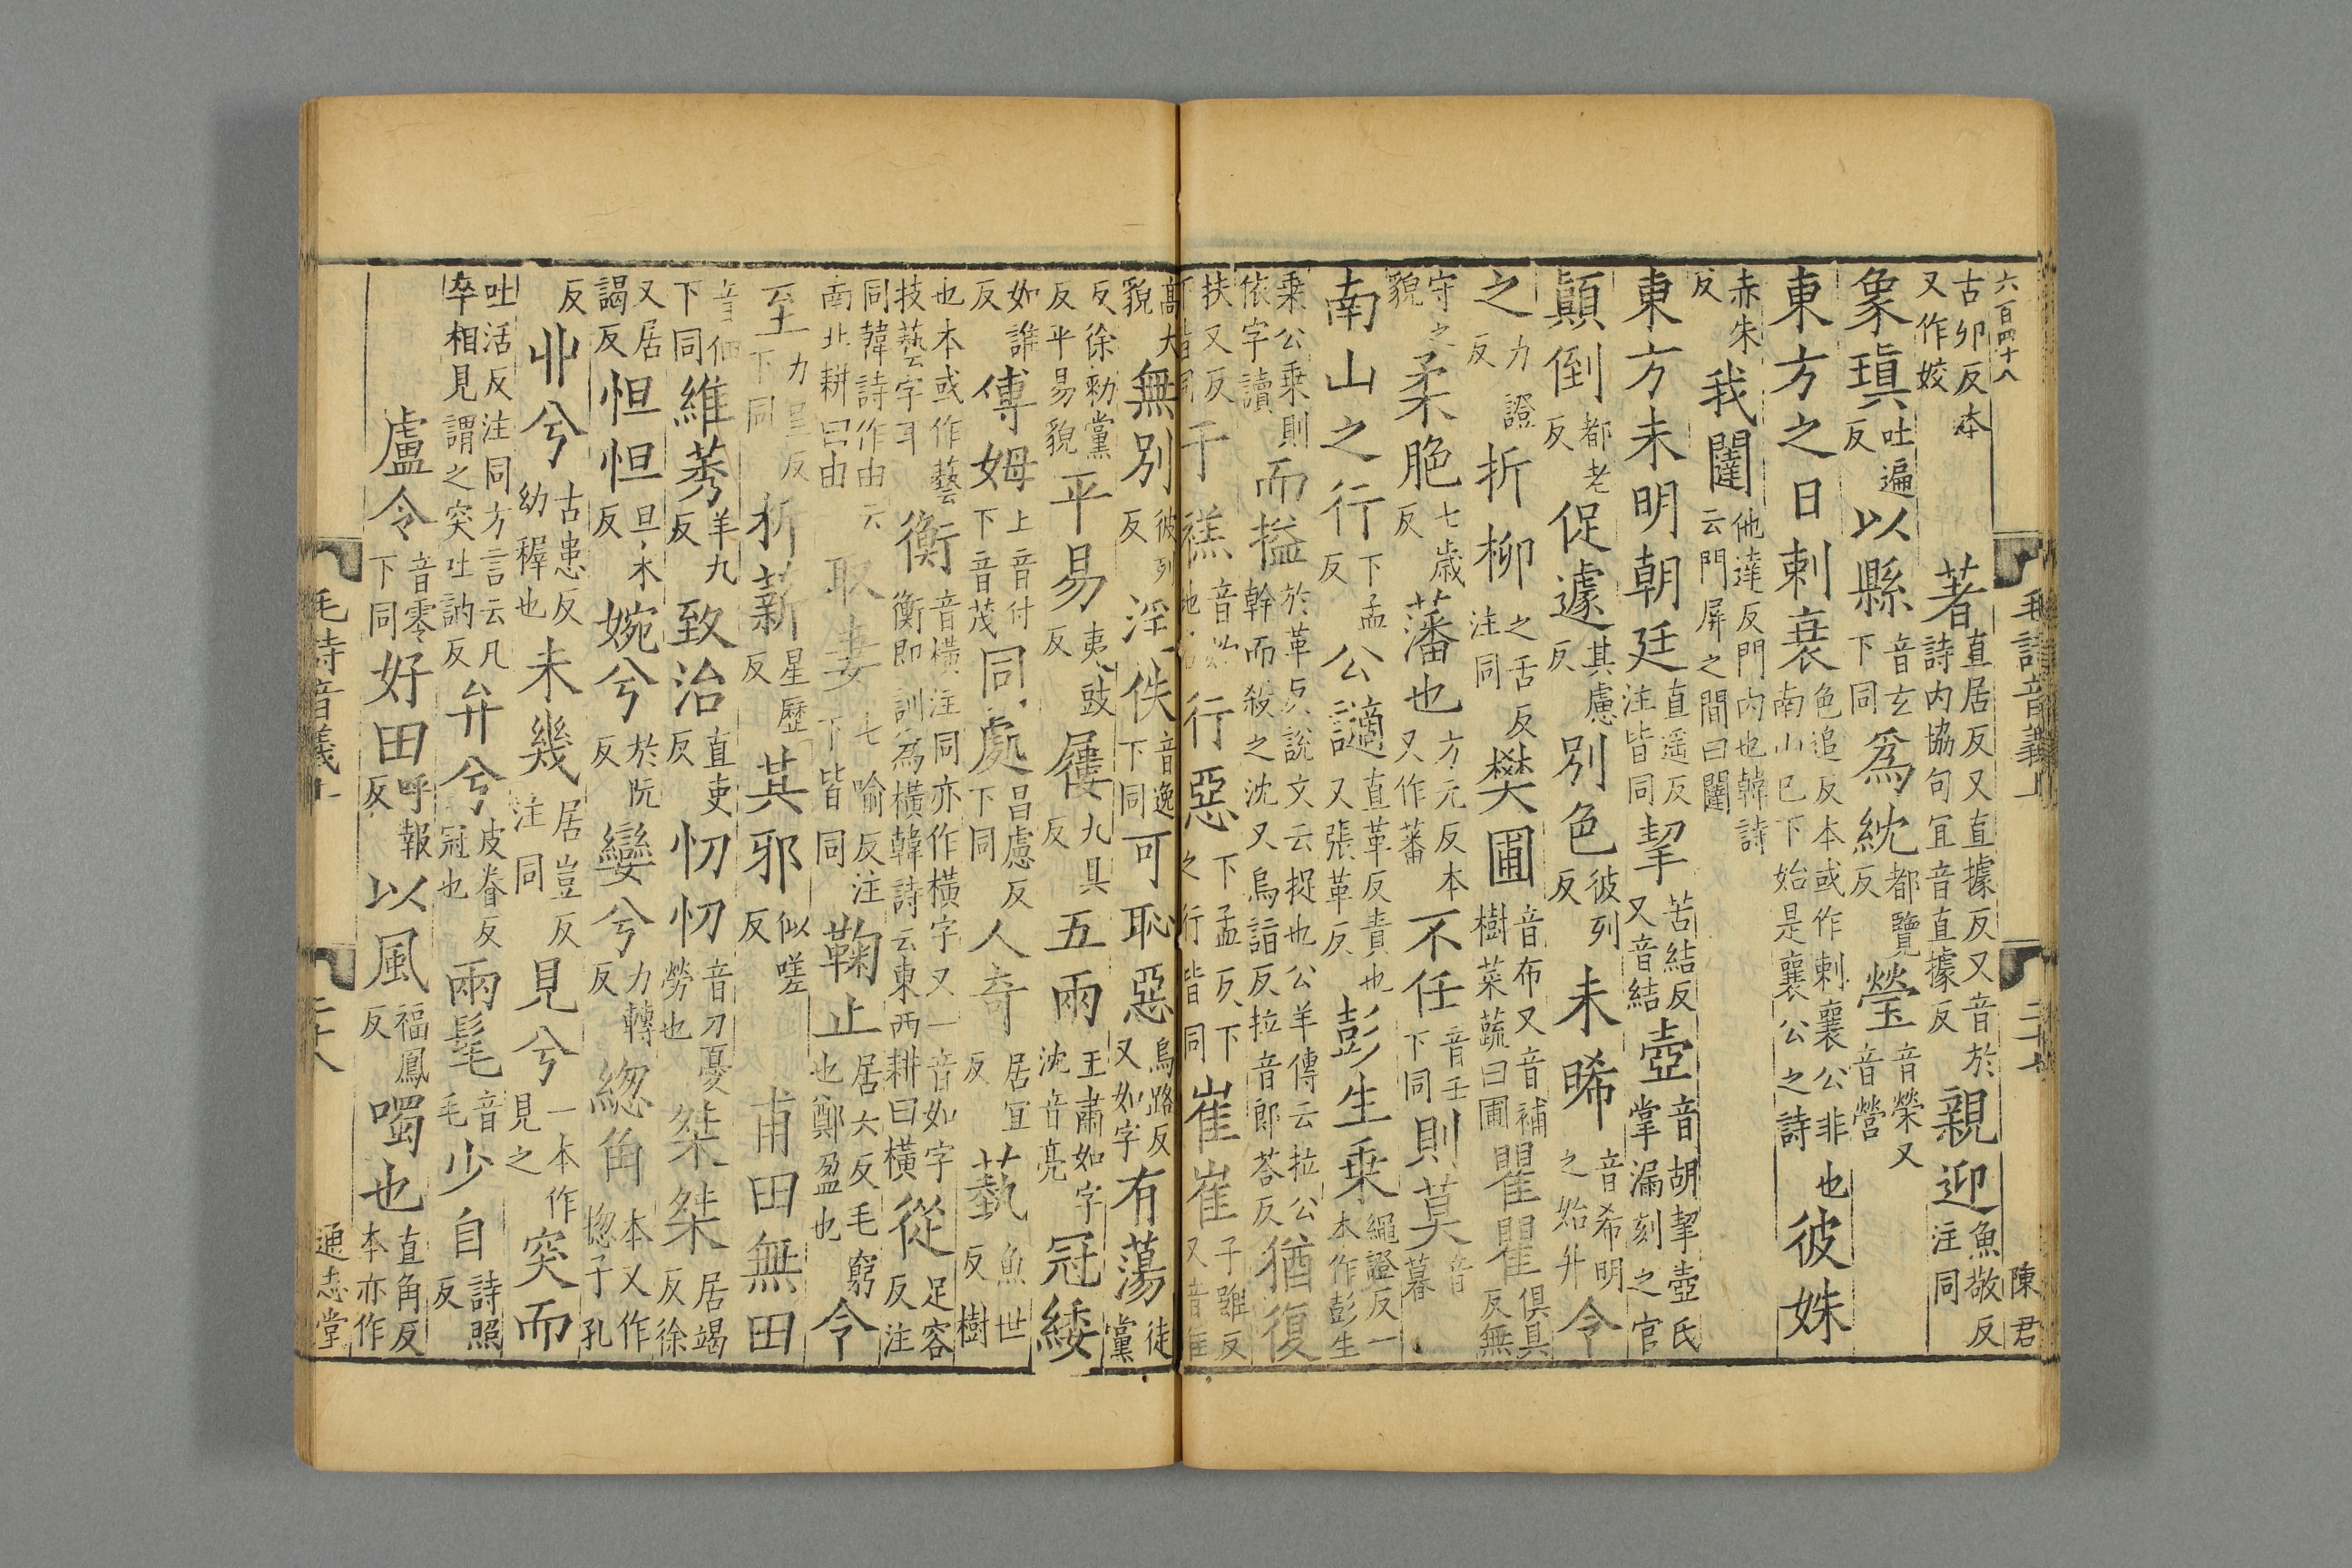 六百四十八
毛詩音義上
二十七
陳君
古卯反本又作姣 著 直居反又直據反又音於詩内協句冝音直據反 親迎 魚敬反注同
象瑱 吐遍反 以縣 音玄下同 爲紞 都覽反 瑩 音榮又音營
東方之日刺衰 色追反本或作刺襄公非也南山巳下始是襄公之詩 彼姝
赤朱反 我闥 他達反門内也韓詩云門屏之間曰闥
東方未明朝廷 直遥反注皆同 挈 苦結反又音結 壺 音胡挈壺氏掌漏刻之官
顛倒 都老反 促遽 其慮反 別色 彼列反 未晞 音希明之始升 令
之 力證反 折柳 之舌反注同 樊圃 音布又音補樹菜蔬曰圃 瞿瞿 俱具反無
守之貌 柔脆 七歲反 藩也 方元反本又作蕃 不任 音壬下同 則莫 音暮
南山之行 下孟反 公謫 直革反責也又張革反 彭生乘 繩證反一本作彭生
乘公乘則依字讀 而搤 於革反説文云捉也公羊傳云拉公幹而殺之沈又烏詣反拉音郎荅反 猶復
扶又反下皆同 于禚 音灼地名 行惡 下孟反下之行皆同 崔崔 子雖反又音隹
高大貌 無別 彼列反 淫佚 音逸下同 可恥惡 烏路反又如字 有蕩 徒黨
反徐勑黨反平易貌 平易 夷豉反 屨 九具反 五兩 王肅如字沈音亮 冠緌
如誰反 傅姆 上音付下音茂 同處 昌慮反下同 人奇 居宜反 蓺 魚世反樹
也本或作藝技藝字耳 衡 音橫注同亦作橫字又一音如字衡即訓爲橫韓詩云東西耕曰橫 從 足容反注
同韓詩作由云南北耕曰由 取妻 七喻反注下皆同 鞠止 居六反毛窮也鄭盈也 令
至 力呈反下同 析薪 星歷反 其邪 似嗟反 甫田無田
音佃下同 維莠 羊九反 致治 直吏反 忉忉 音刀憂勞也 桀桀 居竭反徐
又居謁反 怛怛 旦末反 婉兮 於阮反 孌兮 力轉反 緫角 本又作揔子孔
反 丱兮 古患反幼穉也 未幾 居豈反注同 見兮 一本作見之 突而
吐活反注同方言云凡卒相見謂之突吐訥反 弁兮 皮眷反冠也 兩髦 音毛 少自 詩照反
盧令 音零下同 好田 呼報反 以風 福鳳反 噣也 直角反本亦作
毛詩音義上
二十八
通志堂